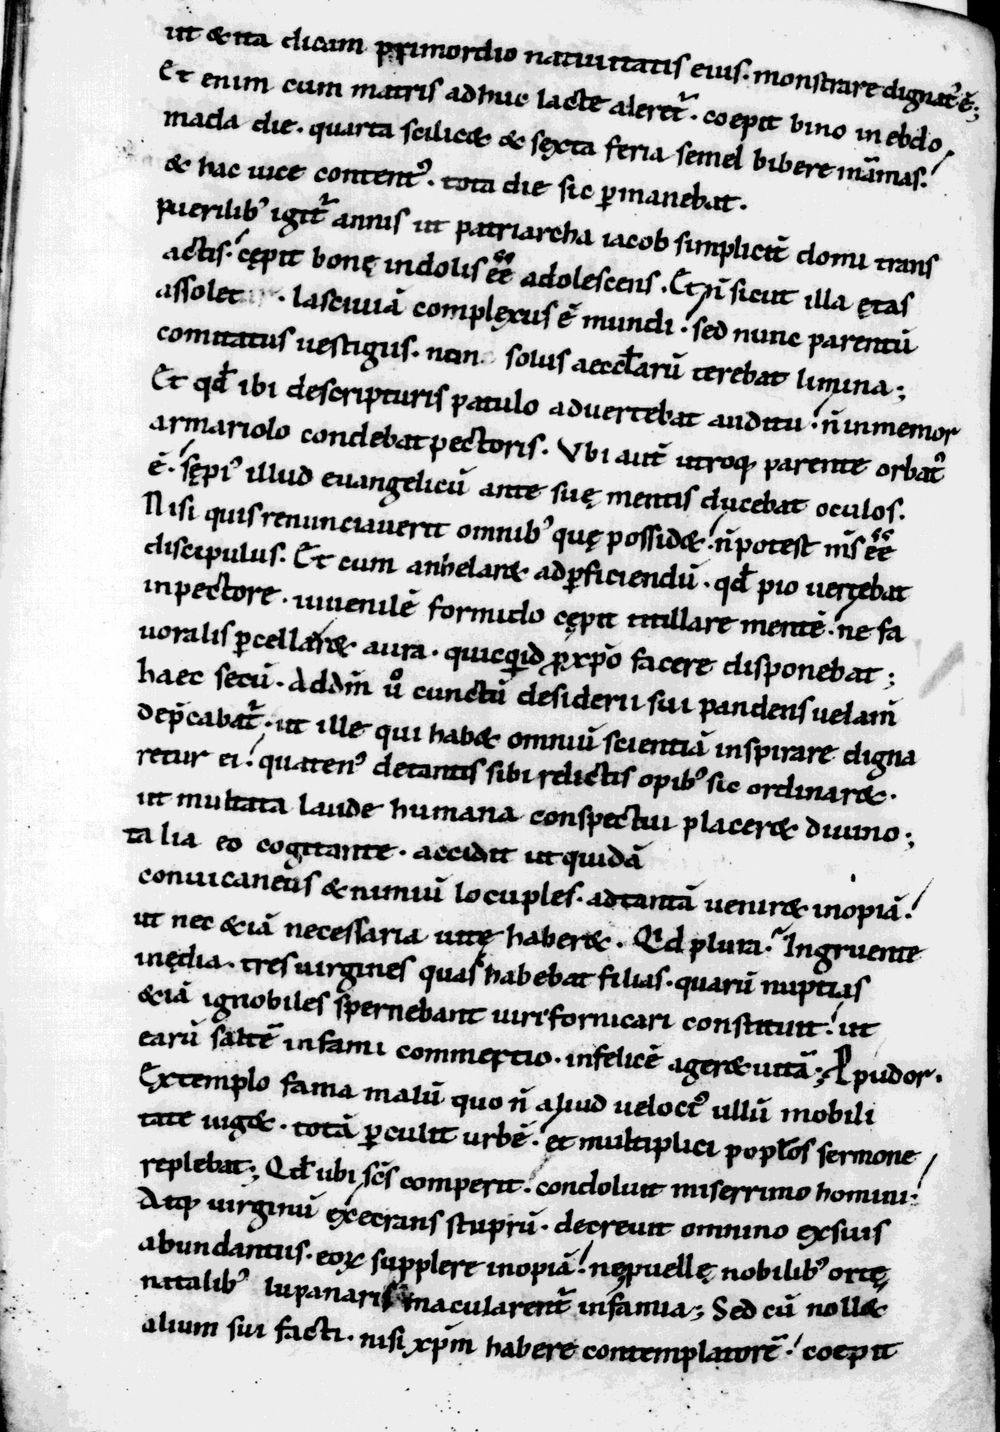 ut &ita dicam primordio natiuitatis eius. monstrare dignat᷒ ē;
Et enim cum matris adhuc lacte aleret᷒. coepit bino in ebdo
mada die. quarta scilic& & sexta feria semel bibere māmas.
& hac uice content᷒. tota die sic ꝑmanebat.
puerilib᷒ igit᷒ annis ut patriarcha iacob simplicit̄ domi trans
actis. cępit bonę indolis ēē adolescens. Et n̄ sicut illa ętas
assolet . lasciuiā complexus ē mundi. sed nunc parentū
comitatus uestigiis. nunc solus aeccl̄arū terebat limina;
Et qđ ibi descripturis patulo aduertebat auditu. n̄ inmemor
armariolo condebat pectoris. Vbi aut̄ utroq; parente orbat᷒
ē. sępi᷒ illud euangelicū ante suę mentis ducebat oculos.
Nisi quis renunciauerit omnib᷒ quę possid&. n̄ potest m̄s ēē
discipulus. Et cum anhelar& adꝑficiendū. qđ pio uertebat
inpectore. iuuenilē formido cępit titillare mentē. ne fa
uoralis ꝑcellar& aura. quicqid ꝓ xp̄o facere disponebat;
haec secū. Addn̄m ů cunctū desiderii sui pandens uelam̄
dep̄cabat᷒. ut ille qui hab& omniū scientiā inspirare digna
retur ei. quaten᷒ detantis sibi relictis opib᷒ sic ordinar&.
ut multata laude humana conspectui placer& diuino;
talia eo cogitante. accidit ut quidā
conuicaneūs & nimiū locuples. adtantā uenir& inopiā.
ut nec &iā necessaria uitę haber&. Qđ plura. Ingruente
inędia. tres uirgines quas habebat filias. quarū nuptias
&iā ignobiles spernebant uiri fornicari constituit. ut
earū saltē infami commertio. infelicē ager& uitā; P pudor.
Extemplo fama malū quo n̄ aliud uelocı᷒ ullū mobili
tate uig&. totā ꝑculit urbē. et multiplici popl̄os sermone
replebat; Qđ ubi sc̄s comperit. condoluit miserrimo homini.
Atq; uirginū execrans stuprū. decreuit omnino exsuis
abundantiis. eoꝝ supplere inopiā. ne puellę nobilib᷒ ortę
natalib᷒ lupanaris macularent᷒ infamia; Sed cū noll&
alium sui facti. nisi xp̄m habere contemplatorē. coepit